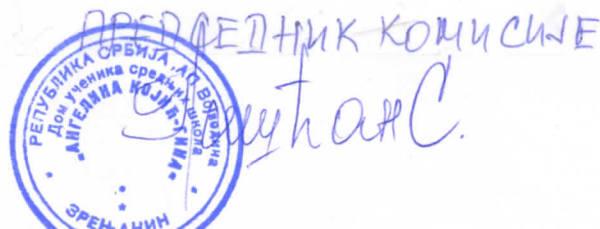 ПРЕДСЕДНИК КОМИСИЈЕ
РЕПУБЛИКА СРБИЈА, АП ВОЈВОДИНА
Дом ученика средњих школа
"АНГЕЛИНА КОЈИЋ-ГИНА"
ЗРЕЊАНИН